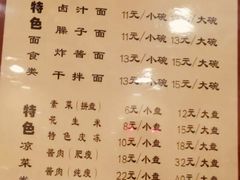 特色面食类
卤汁面 11元/小碗 13元/大碗
臊子面 11元/小碗 13元/大碗
炸酱面 13元/小碗 15元/大碗
干拌面 13元/小碗 15元/大碗
特色凉菜类
素菜(拼盘) 6元/小盘 12元/大盘
花生米 8元/小盘 15元/大盘
特色皮冻 10元/小盘 18元/大盘
酱肉(肥瘦) 18元/小盘 32元/大盘
酱肉(纯瘦) 22元/小盘 40元/大盘